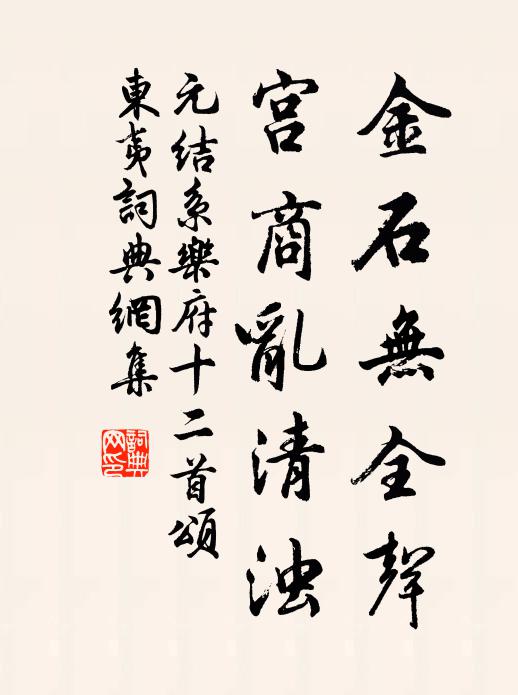 金石無全聲
宮商亂清浊
元结系樂府十二首頌
東夷詞典網集
詞典网印